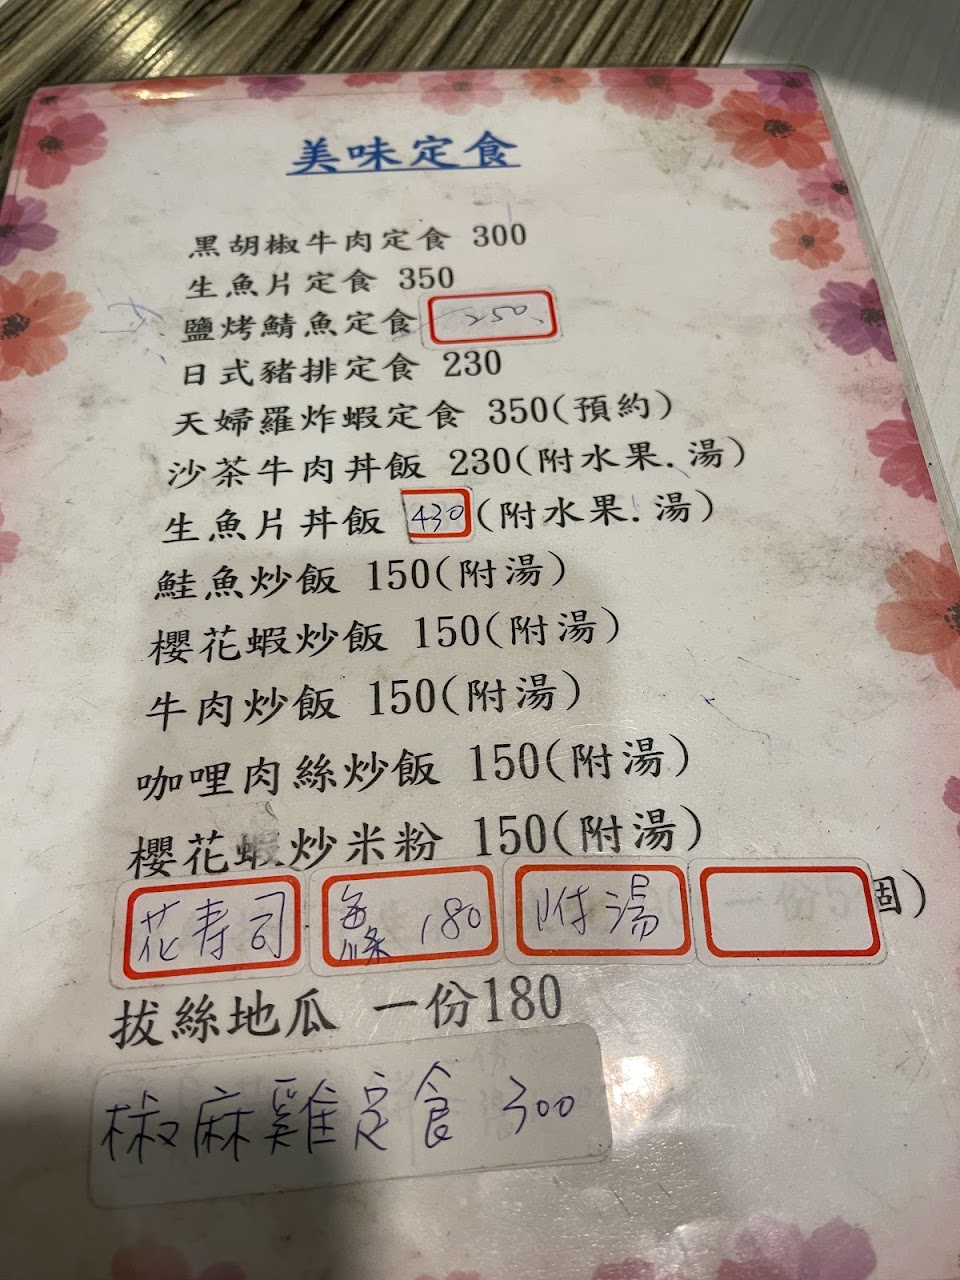 美味定食
黑胡椒牛肉定食 300
生魚片定食 350
鹽烤鯖魚定食 250
日式豬排定食 230
天婦羅炸蝦定食 350(預約)
沙茶牛肉丼飯 230(附水果.湯)
生魚片丼飯 430(附水果.湯)
鮭魚炒飯 150(附湯)
櫻花蝦炒飯 150(附湯)
牛肉炒飯 150(附湯)
咖哩肉絲炒飯 150(附湯)
櫻花蝦炒米粉 150(附湯)
花壽司 每條 180 附湯 個)
拔絲地瓜 一份180
椒麻雞定食 300